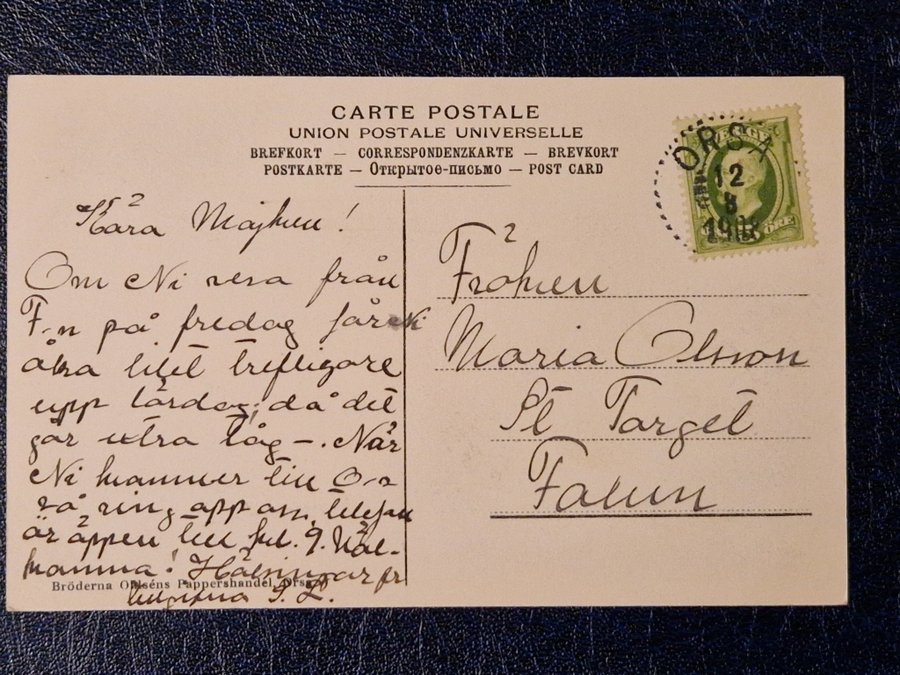 CARTE POSTALE
UNION POSTALE UNIVERSELLE
BREFKORT — CORRESPONDENZKARTE — BREVKORT
POSTKARTE — Открытое-письмо — POST CARD
ORSA
12
8
SVERIGE
ÖRE
Kära Majken!
Om Ni resa från
F-n på fredag får Ni
åka litet trefligare
upp lördag, då det
går extra tåg –. När
Ni kommer till O-a
så ring upp oss, telefon
är öppen till kl. 9. Väl-
komna! Hälsningar fr
Fröken
Maria Olsson
St Torget
Falun
Bröderna Ohlséns Pappershandel, Orsa